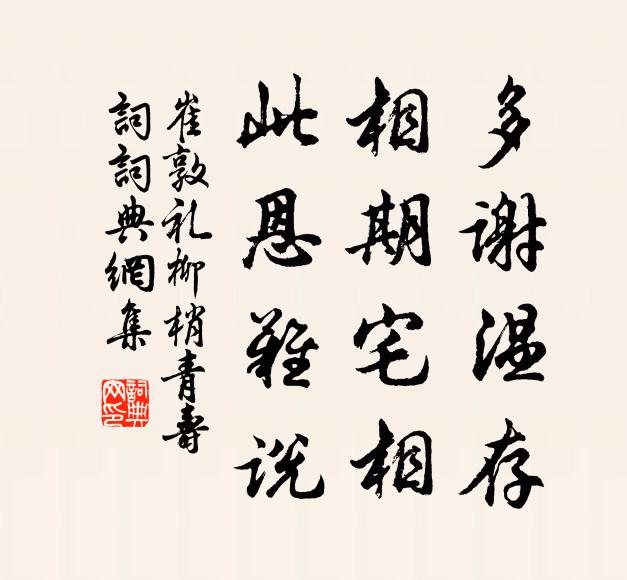 多谢温存
相期宅相
此恩难说
崔敦礼柳梢青寿
词词典網集
詞典網印